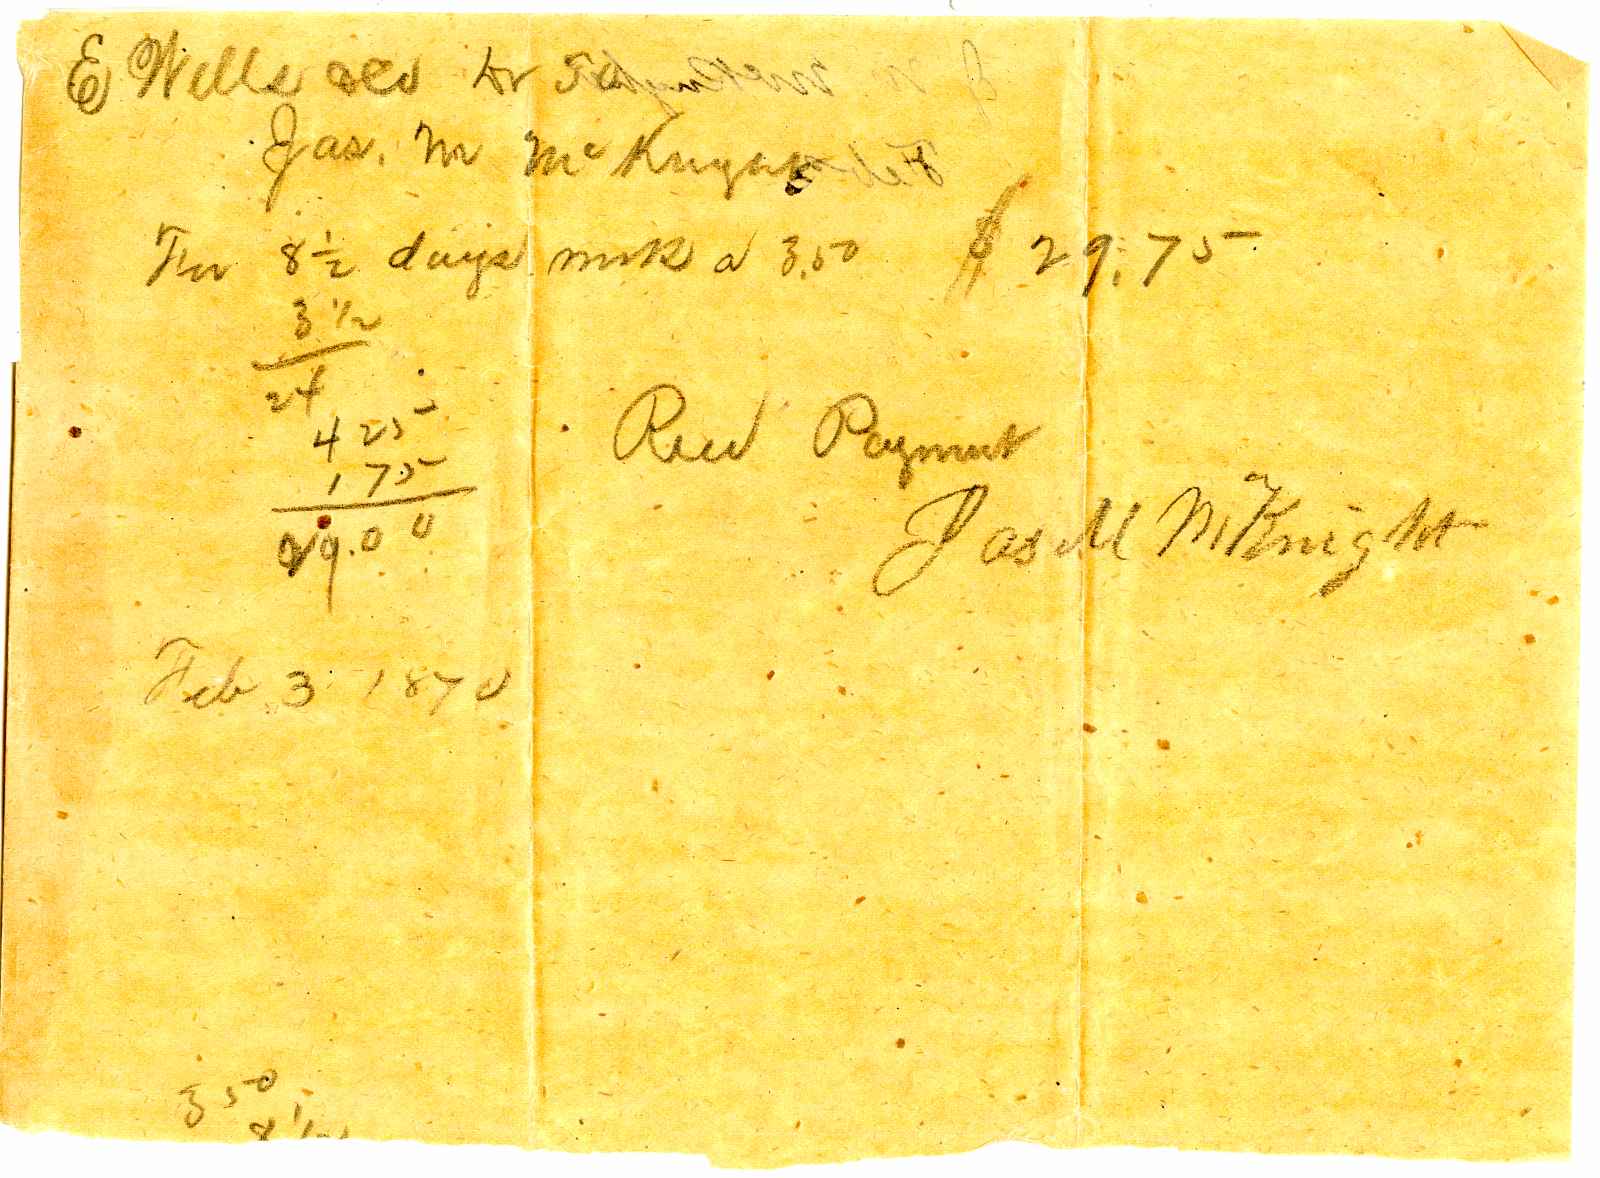 E Wells & Co Dr To
Jas. M McKnight
For 8½ days work a 3.50 $29.75
3 1/2
24
4 25
1 75
29.00
Recd Payment
Jas M McKnight
Feb 3 1870
3 50
8 1/2